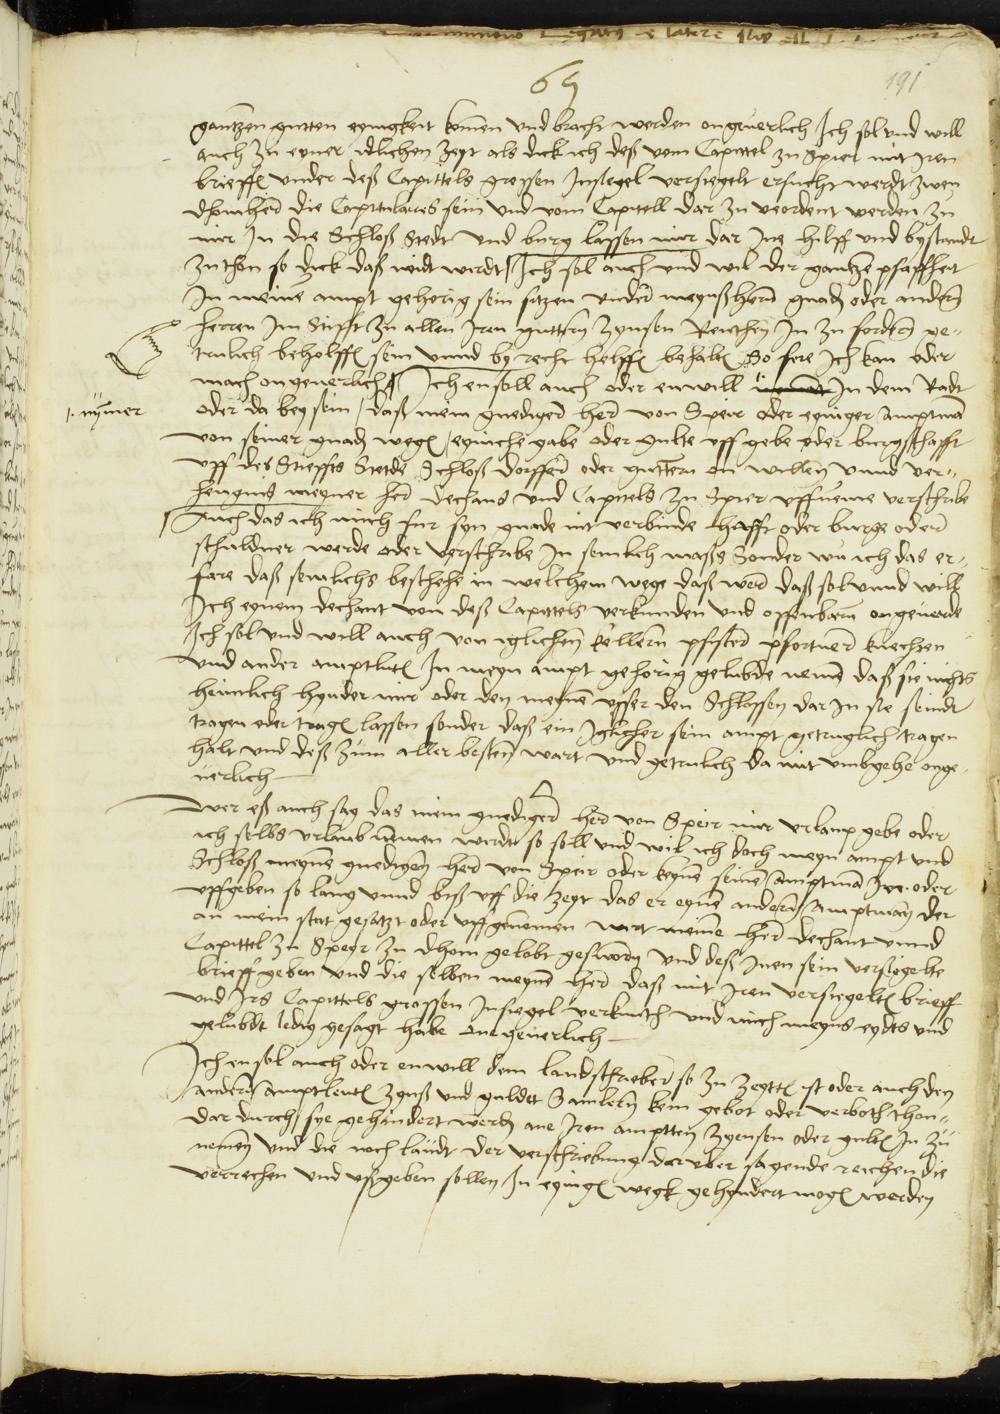 69
191
gantzen gutten eynigkeit komen vnd bracht werden ongeuerlich Ich sol vnd will
auch zu eyner idlichen zeyt als dick ich deß vom Capittel zu Speier mit iren
brieffe vnder deß Capittels grossen Insiegel versiegelt ersucht werdt zwen
dhomherrn die Capitulares sein vnd vom Capittell dar zu verordent werden zu
mir In die Schloß Stedt vnd burg lassen mir dar Inn hilff vnd bystandt
zuthon so dick daß nidt wirdt Ich sol auch vnd wil der gantze pfaffheit
In meine ampt gehorig sein sitzen vnder meynß herrn gnaden oder andern
herren Im Stifft zu allen Iren guttern zynsen Renthen In zu fordern ge-
trulich beholffe sein vnnd by recht helffe behalte So fere Ich kan oder
mach ongeuerlich Ich ensoll auch oder enwill In dem Radt
nymer
oder da bey sein daß mein gnediger her von Speir oder eyniger Amptman
von seiner gnaden wege eyniche gabe oder gulte vff gebe oder burgschafft
vff des Stieffts Stetde Schloß dorffer oder guttern on willen vnnd ver-
hengnis meyner her dechans vnd Capitels zu Speir vffneme verschribe
Auch das ich mich fur syn gnade nit verbinde hafft oder burge oder
schuldner werde oder verschribe In semlich masse Sonder wu ich das er-
fare daß semlichs beschehe in welchem wege daß wer daß sol vnnd will
Ich eynem dechant von deß Capittels verkunden vnd offenbarn ongeuerde
Ich sol vnd will auch von iglichen kellern pfister pfortner knechten
vnd ander amptlute In meyn ampt gehorig gelubde nemen daß sie nichts
heimlich hynder mir oder den meynen vsser den Schlossen dar In sie seindt
tragen oder trage lassen sonder daß ein Iglicher sein ampt getruglich tragen
halt vnd deß zum aller besten wart vnd getrulich da mit vmbgehe onge-
uerlich
Wer eß auch sag das mein gnediger her von Speir mir vrlaup gebe oder
ich selbs vrlaub nemen wurde so soll vnd wil ich doch meyn ampt vnd
Schloß meynem gnedigen hern von Speir oder keynem seinem Amptman oder
vffgeben so lang vnnd biß vff die zeyt das er eynen andern Amptman der
an mein stat gesatzt oder vffgenomen wirt meinen hern dechant vnnd
Capittel zu Speyr zu dhom gelobt gesworn vnd deß Inen sein versigelte
brieff geben vnd die selben meyne hern daß mit Iren versiegelte brieff
vnd Irs Capittels grossen Insiegel verkuncth vnd mich meyns eydts vnd
gelubdt ledig gesagt habe ane geuerlich
Ich ensol auch oder enwill dem landschrieber so zu zeytte ist oder auch den
andern amptleute zynß vnd guldt Samlern kein gebot oder verboth thon
dar durch sye gehindert werden ane Iren amptten zynsen oder gulte In zu
nemen vnd die noch laudt der verschriebung dar vber sagende reichen die
verrechen vnd vßgeben sollen In eynige wegk gehyndert moge werden